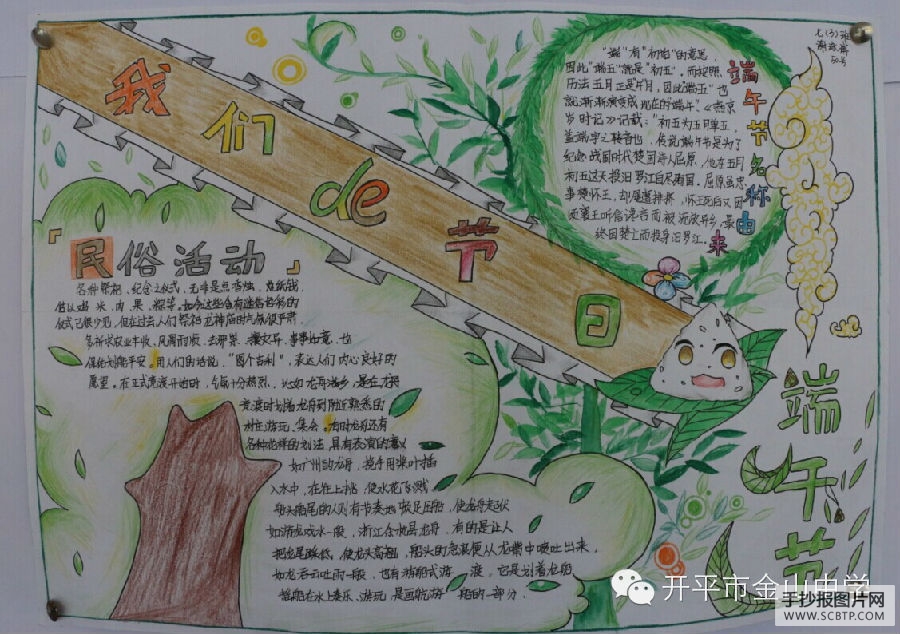 我们de节日
七(3)班
50号
端午节名称由来
"端"有"初始"的意思,
因此"端五"就是"初五"。而按照
历法五月正是"午"月,因此"端五"也
就渐渐演变成现在的"端午"。《燕京
岁时记》记载:"初五为五月单五,
盖端字之转音也。传说端午节是为了
纪念战国时代楚国诗人屈原,他在五月
初五这天投汨罗江自尽殉国。屈原虽忠
事楚怀王,却屡遭排挤,怀王死后又因
襄王听信谗言而被流放异乡,最
终因楚亡而投身汨罗江。
民俗活动
各种祭祀、纪念之仪式,无非是点香烛,烧纸钱,
供以鸡、米、肉、果、粽等。如今这些含有迷信色彩的
仪式已很少见,但在过去人们祭祀龙神庙的气氛很严肃,
多祈求农业丰收、风调雨顺、去邪祟、攘灾异、事事如意,也
保佑划船平安。用人们的话说,"图个吉利",表达人们内心良好的
愿望。在正式竞渡开始时,气氛十分热烈。
竞渡时划着龙舟到附近熟悉的
村庄游玩、集会。有时龙舟还有
各种花样的划法,具有表演的意义
如广州的龙舟,挽手用桨叶插
入水中,在往上挑,使水花飞溅
船头船尾的人则有节奏地顿足压船,使龙舟起伏
如游龙戏水一般。浙江余杭县龙舟,有的是让人
把龙尾踩低,使龙头高翘,船头的急浪便从龙嘴中喷吐出来,
如龙吞云吐雨一般。也有游船式游渡。它是划着龙船
在水上娱乐、游玩
船的一部分.
端午节
开平市金山中学
手抄报图片网
WWW.SCBTP.COM